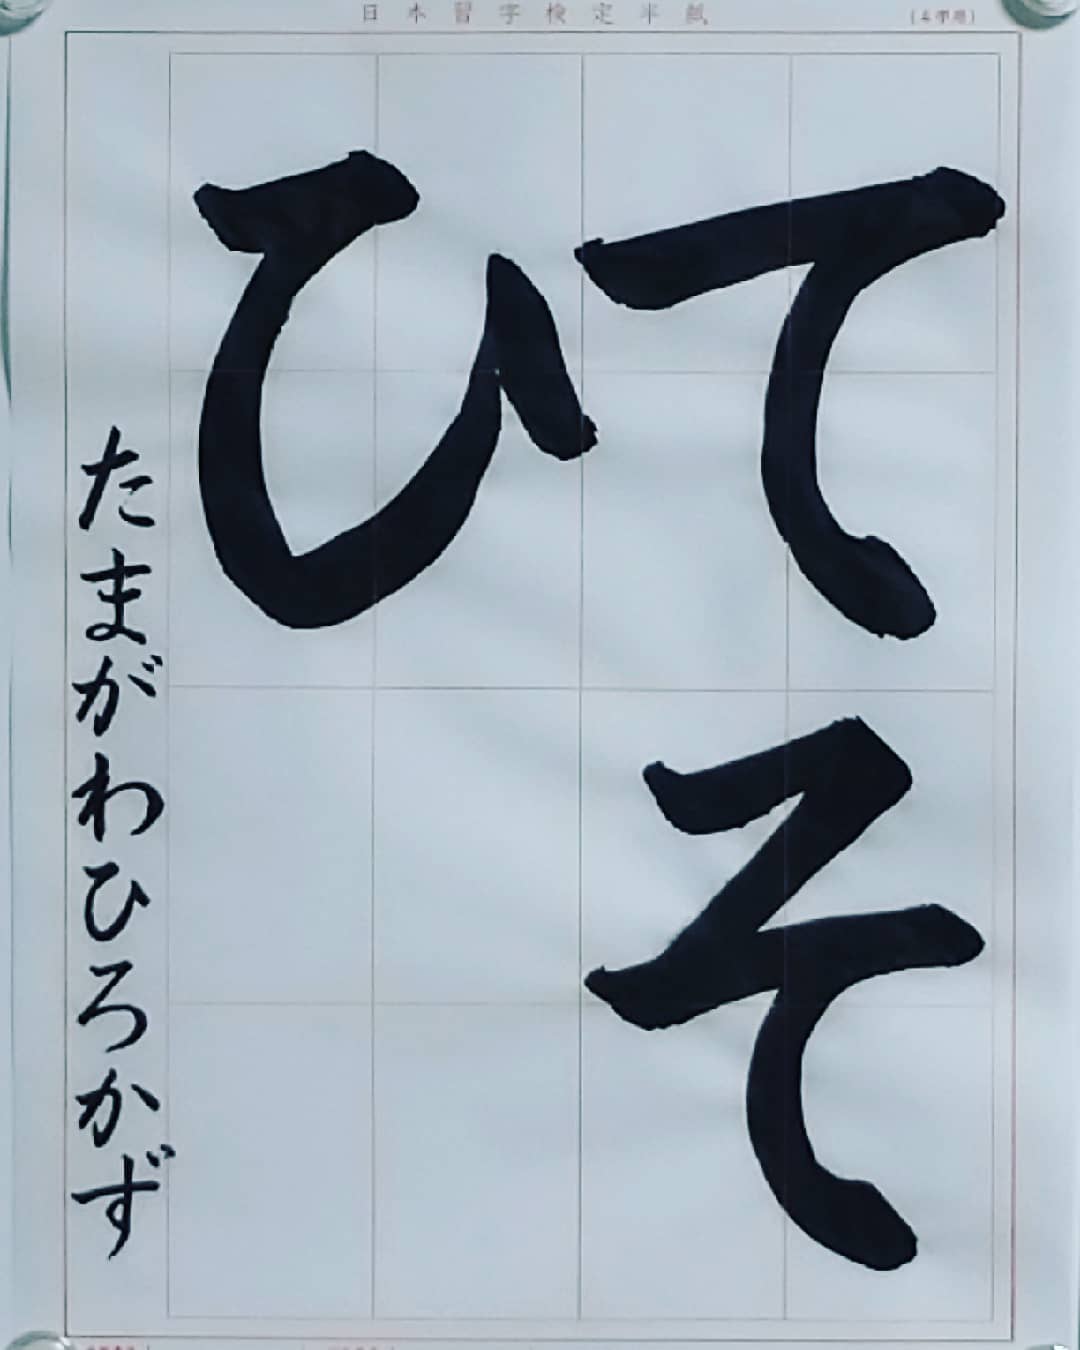 日本習字検定半紙
てそ
ひ
たまがわひろかず